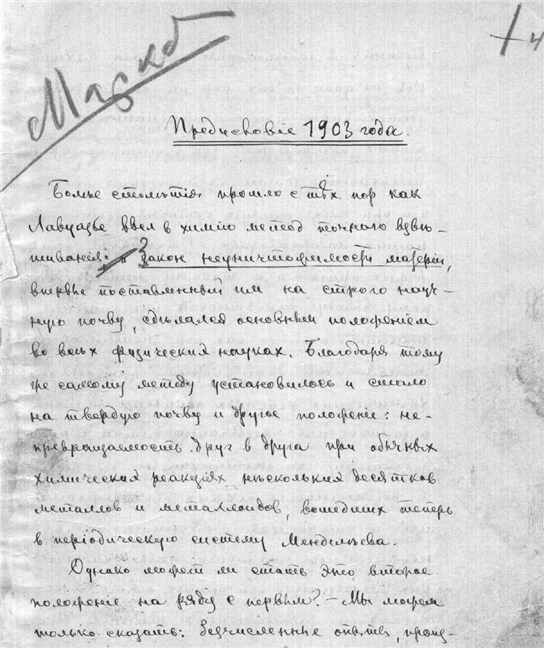 Марко
+ 4
Предисловіе 1903 года.
Болѣе столѣтія прошло с тѣх пор как
Лавуазье ввел в химію метод точнаго взвѣ-
шиванія: и Закон неуничтожимости матеріи,
впервые поставленный им на строго науч-
ную почву, сдѣлался основным положеніем
во всѣх физических науках. Благодаря тому
же самому методу установилось и стало
на твердую почву и другое положеніе: не-
превращаемость друг в друга при обычных
химических реакціях нѣскольких десятков
металлов и металлоидов, вошедших теперь
в періодическую систему Менделѣева.
Однако может ли стать это второе
положеніе на ряду с первым? – Мы можем
только сказать: безчисленные опыты, произ-